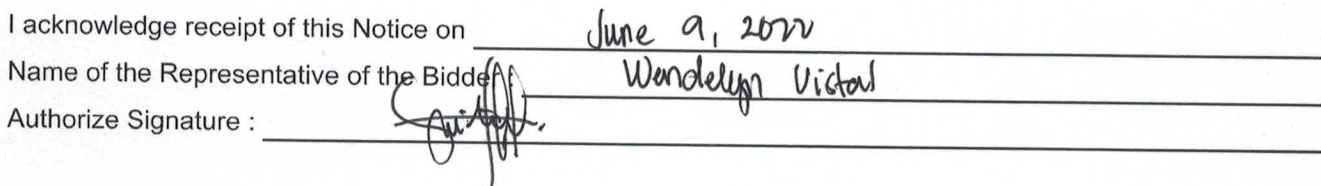 I acknowledge receipt of this Notice on June 9, 2022
Name of the Representative of the Bidder: Wendelyn Vistal
Authorize Signature :